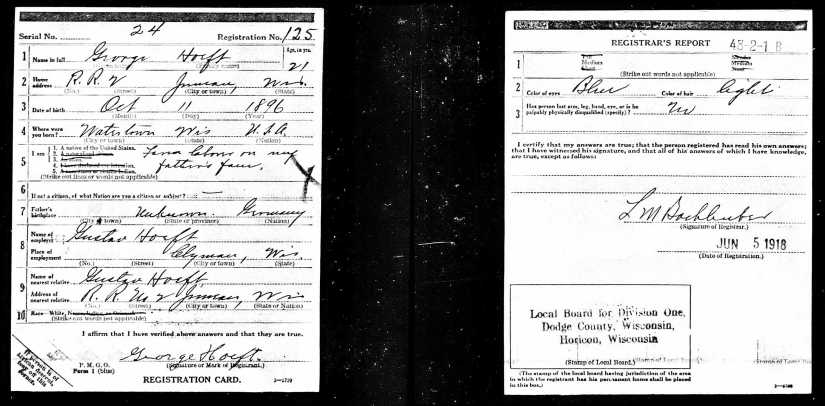 Serial No. 24 Registration No. 125
1 Name in full George Hoeft Age, in yrs. 21
2 Home address R.R. 2 Wis.
(No.) (Street) (City or town) (State)
3 Date of birth Oct 11 1896
(Month) (Day) (Year)
4 Where were you born? Watertown Wis U.S.A.
(City or town) (State) (Nation)
5 I am 1. A native of the United States.
farm labor on my father's farm.
(Strike out lines or words not applicable)
6 If not a citizen, of what Nation are you a citizen or subject?
7 Father's birthplace Unknown Germany
(City or town) (State or province) (Nation)
8 Name of employer Gustav Hoeft
Place of employment Clyman, Wis.
(No.) (Street) (City or town) (State)
9 Name of nearest relative Gustav Hoeft
Address of nearest relative R. R. No 2 Wis
(No.) (Street) (City or town) (State or Nation)
10 Race - White,
(Strike out words not applicable)
I affirm that I have verified above answers and that they are true.
George Hoeft.
P. M. G. O.
Form 1 (blue)
(Signature or Mark of Registrant.)
REGISTRATION CARD.
If person is of African descent, tear off this corner.
REGISTRAR'S REPORT 48-2-1 B
1 Medium
(Strike out words not applicable)
2 Color of eyes Blue Color of hair light
3 Has person lost arm, leg, hand, eye, or is he palpably physically disqualified (specify)? No
I certify that my answers are true; that the person registered has read his own answers;
that I have witnessed his signature, and that all of his answers of which I have knowledge,
are true, except as follows:
(Signature of Registrar.)
JUN 5 1918
(Date of Registration.)
Local Board for Division One,
Dodge County, Wisconsin,
Horicon, Wisconsin
(Stamp of Local Board.)
(The stamp of the local board having jurisdiction of the area
in which the registrant has his permanent home shall be placed
in this box.)